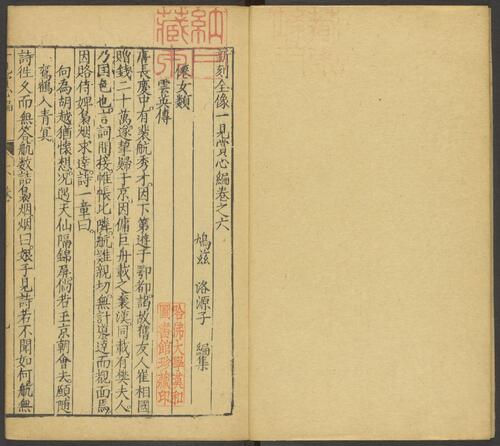 新刻全像一見賞心編卷之六
鳩茲 洛源子 編集
僊女類
雲英傳
唐長慶中有裴航秀才因下第遊于鄂郡謁故舊友人崔相國
贈錢二十萬遂挈歸于京因傭巨舟載之襄漢同載有樊夫人
乃國色也言詞間接帷帳比隣航雖親切無計導達而覩面焉
因賂侍婢裊烟求達詩一章曰
向為胡越猶懷想況遇天仙隔錦屏倘若玉京朝會去願隨
鸞鶴入青冥
詩徃久而無答航数詰裊烟烟曰娘子見詩若不聞如何航無
哈佛大學漢和圖書館珍藏印